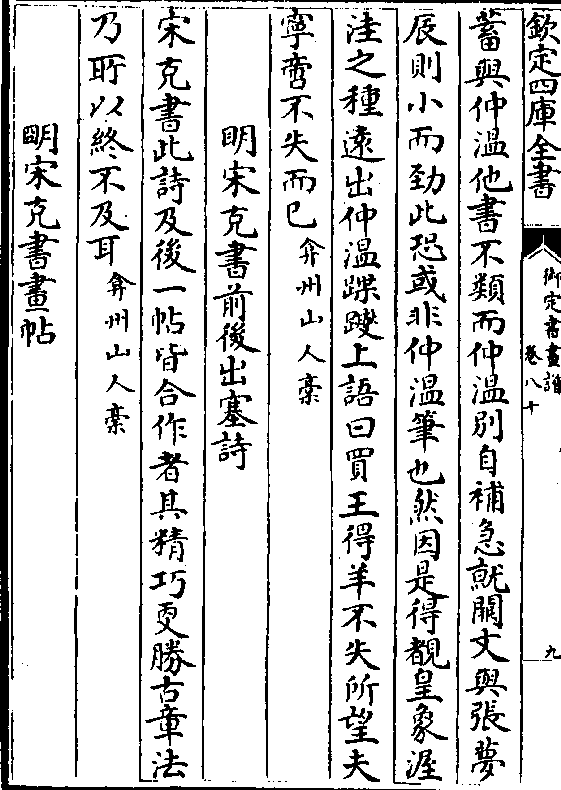 欽定四庫全書
御定書畫譜
卷八十
九
蓄與仲溫他書不類而仲溫別自補急就闕文與張夢
辰則小而勁此恐或非仲溫筆也然因是得覩皇象渥
洼之種遠出仲溫踝躞上語曰買王得羊不失所望夫
寧啻不失而已弇州山人稾
明宋克書前後出塞詩
宋克書此詩及後一帖皆合作者具精巧更勝古章法
乃所以終不及耳弇州山人稾
明宋克書畫帖